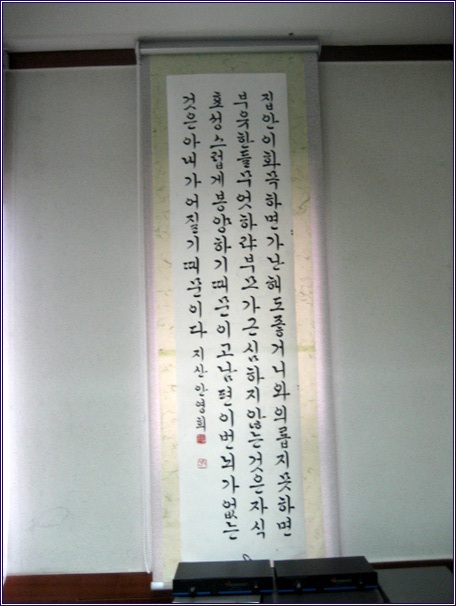 집안이화목하면가난해도좋거니와의롭지못하면
부유한들무엇하랴부모가근심하지않는것은자식
효성스럽게봉양하기때문이고남편이번뇌가없는
것은아내가어질기때문이다 지산안영희